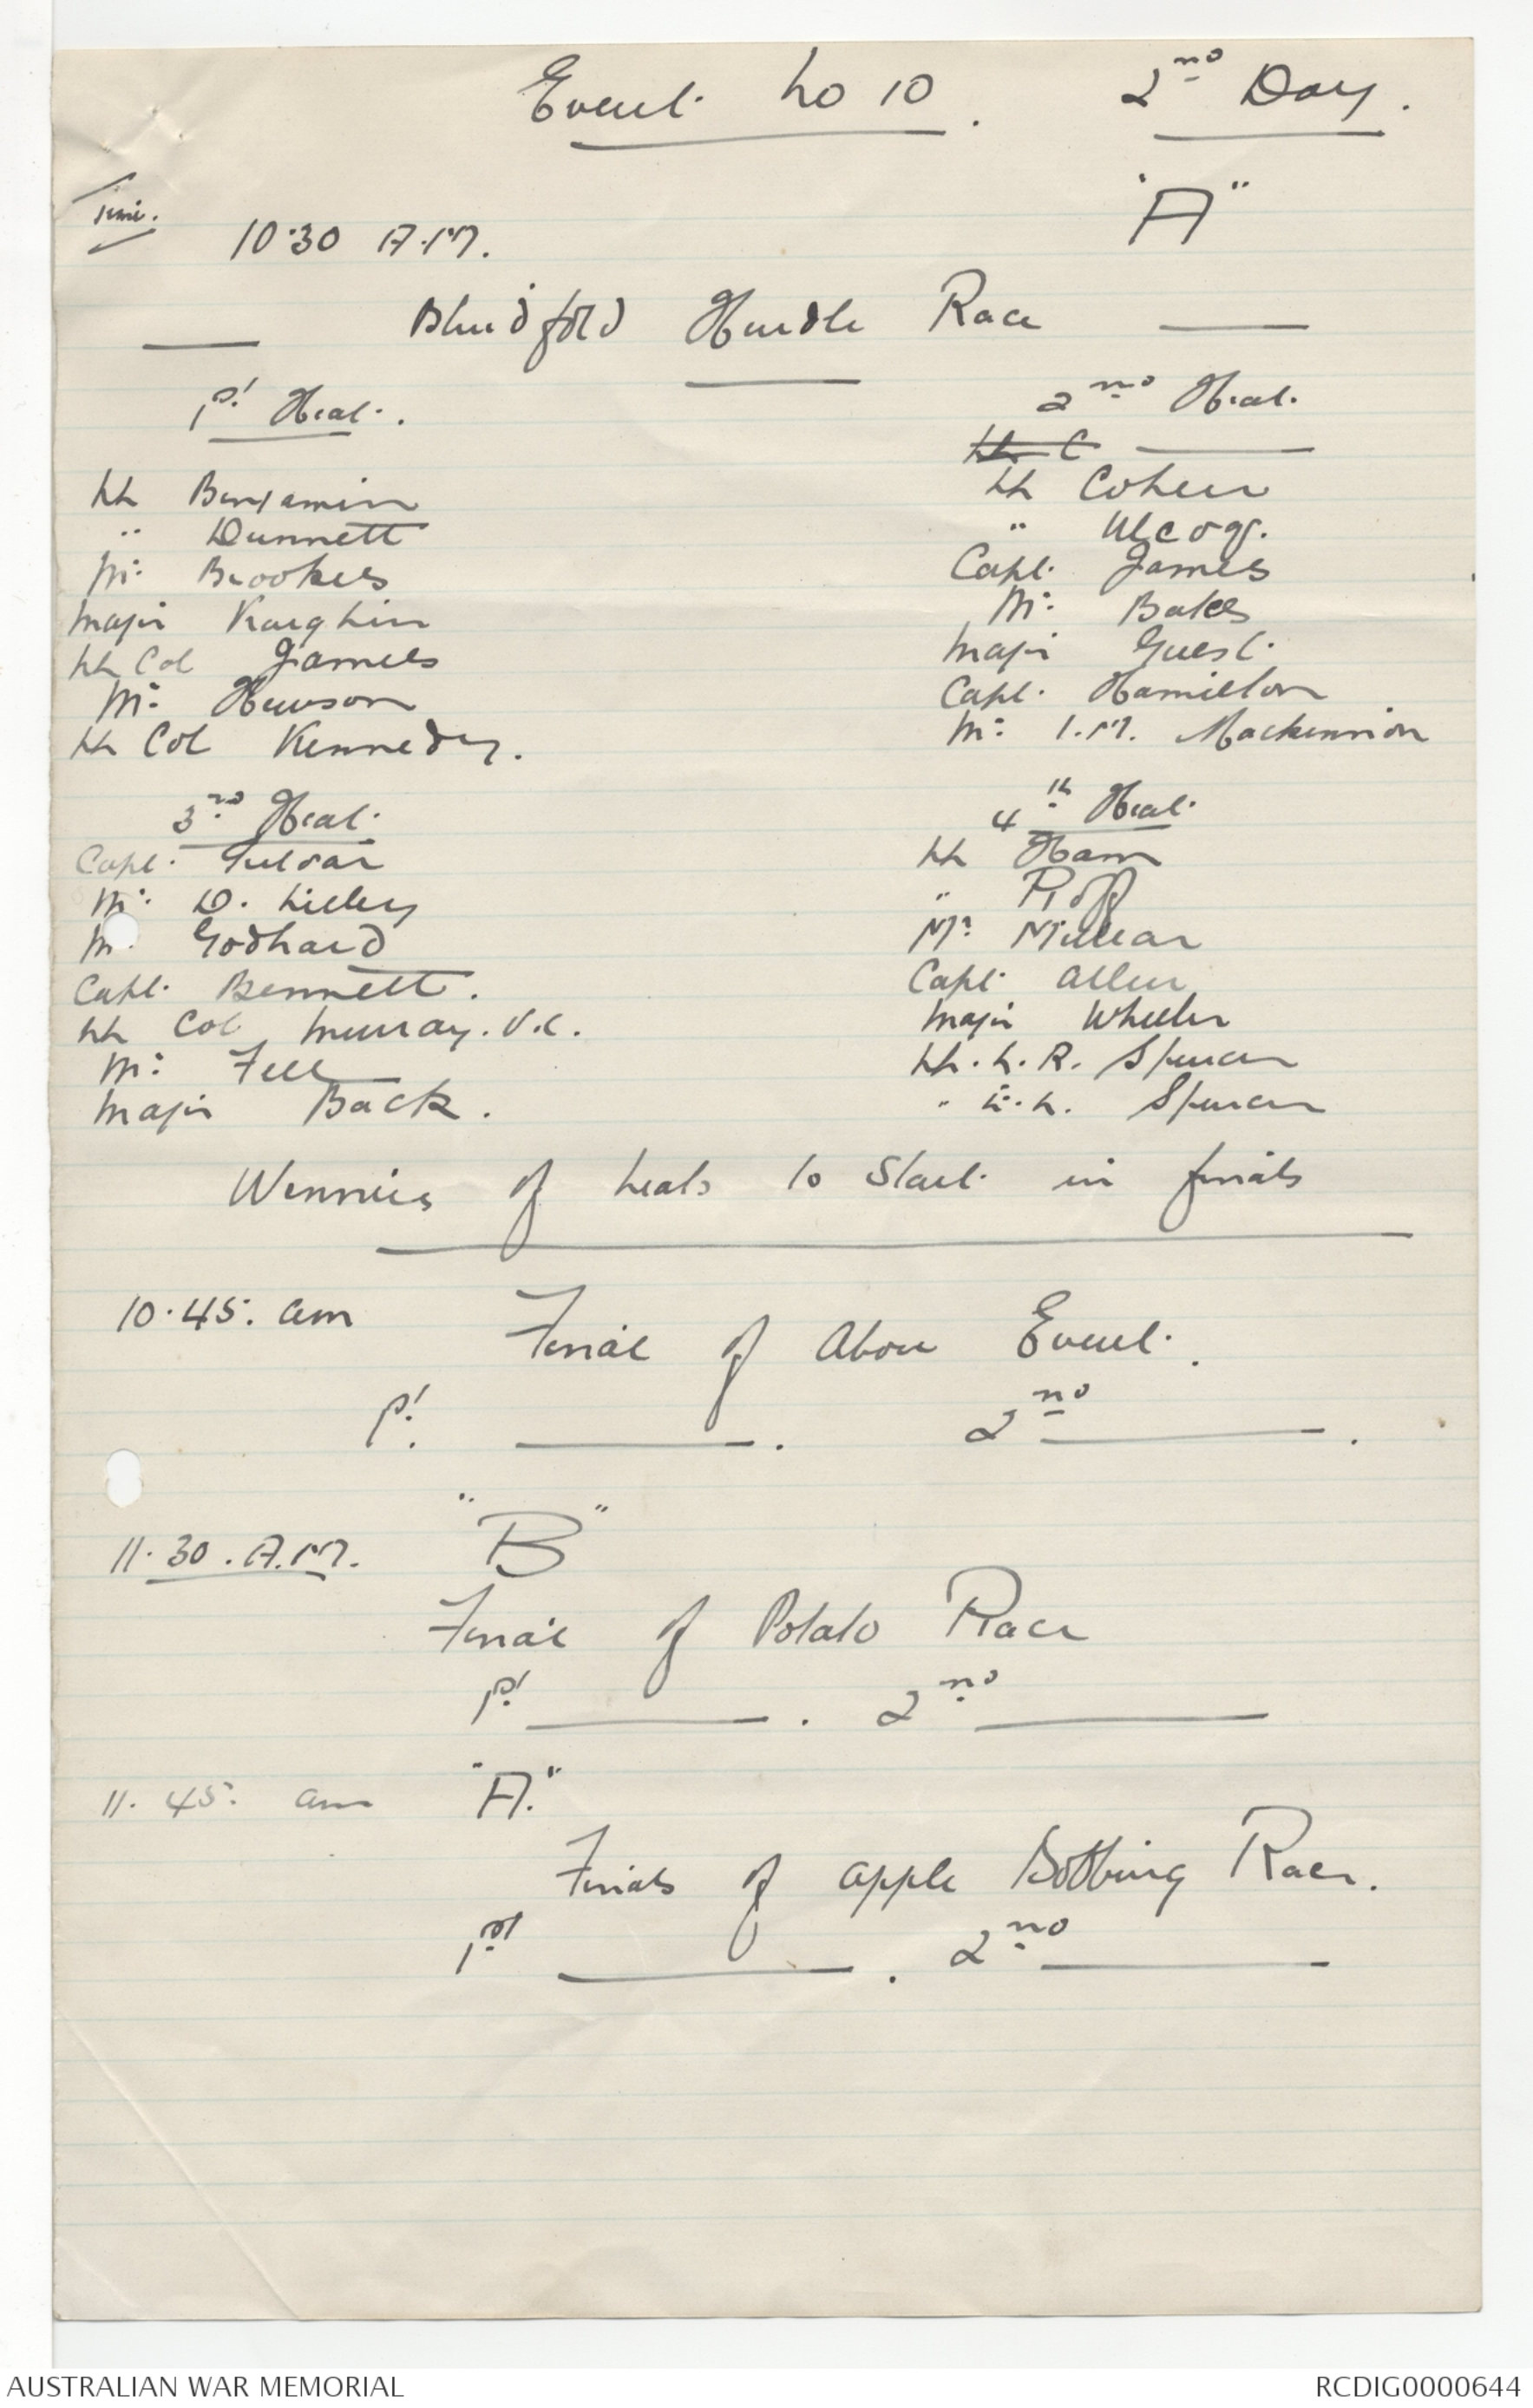 Event No 10. 2nd Day.
Time.
10.30 A.M. "A"
Blindfold Hurdle Race
1st Heat.
Lt Benjamin
" Dunnett
Mr Brookes
Major
Lt Col James
Mr Hewson
Lt Col Kennedy.
2nd Heat.
Lt C
Lt Cohen
"
Capt. James
Mr Bates
Major Guest.
Capt. Hamilton
Mr I.M. Mackinnon
3rd Heat.
Capt.
Mr D. Lilley
Mr Godhard
Capt. Bennett.
Lt Col Murray. V.C.
Mr Fell
Major Back.
4th Heat.
Lt Ham
" Proff
Mr
Capt Allen
Major Wheeler
Lt. L. R. Spencer
" L. Spencer
Winners of heats to Start in finals
10.45. am Final of Above Event.
1st. 2nd
"B"
11.30. A.M.
Final of Potato Race
1st. 2nd
11.45. am "A."
Finals of apple Bobbing Race.
1st. 2nd
AUSTRALIAN WAR MEMORIAL RCDIG0000644